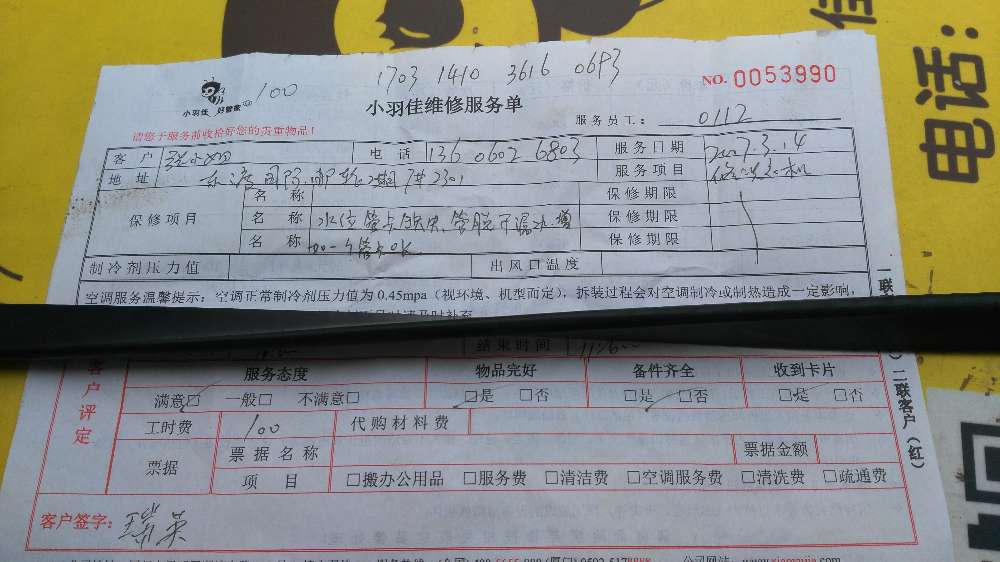 佳
电话:
100
1703 1410 3616 0693
NO. 0053990
小羽佳 好管家
小羽佳维修服务单
服务员工: 0112
请您于服务前收拾好您的贵重物品!
客户 电话 136 0602 6803 服务日期 2017.3.14
地址 服务项目
保修项目 名称 保修期限
名称 水位管卡缺失、管脱开漏水.增 保修期限
名称 加一个管卡OK 保修期限
制冷剂压力值 出风口温度
空调服务温馨提示: 空调正常制冷剂压力值为0.45mpa(视环境、机型而定),拆装过程会对空调制冷或制热造成一定影响,
结束时间
客户评定
服务态度 物品完好 备件齐全 收到卡片
满意□ 一般□ 不满意□ □是 □否 □是 □否 □是 □否
工时费 100 代购材料费
票据 票据名称 票据金额
项目 □搬办公用品 □服务费 □清洁费 □空调服务费 □清洗费 □疏通费
客户签字:
二联客户(红)